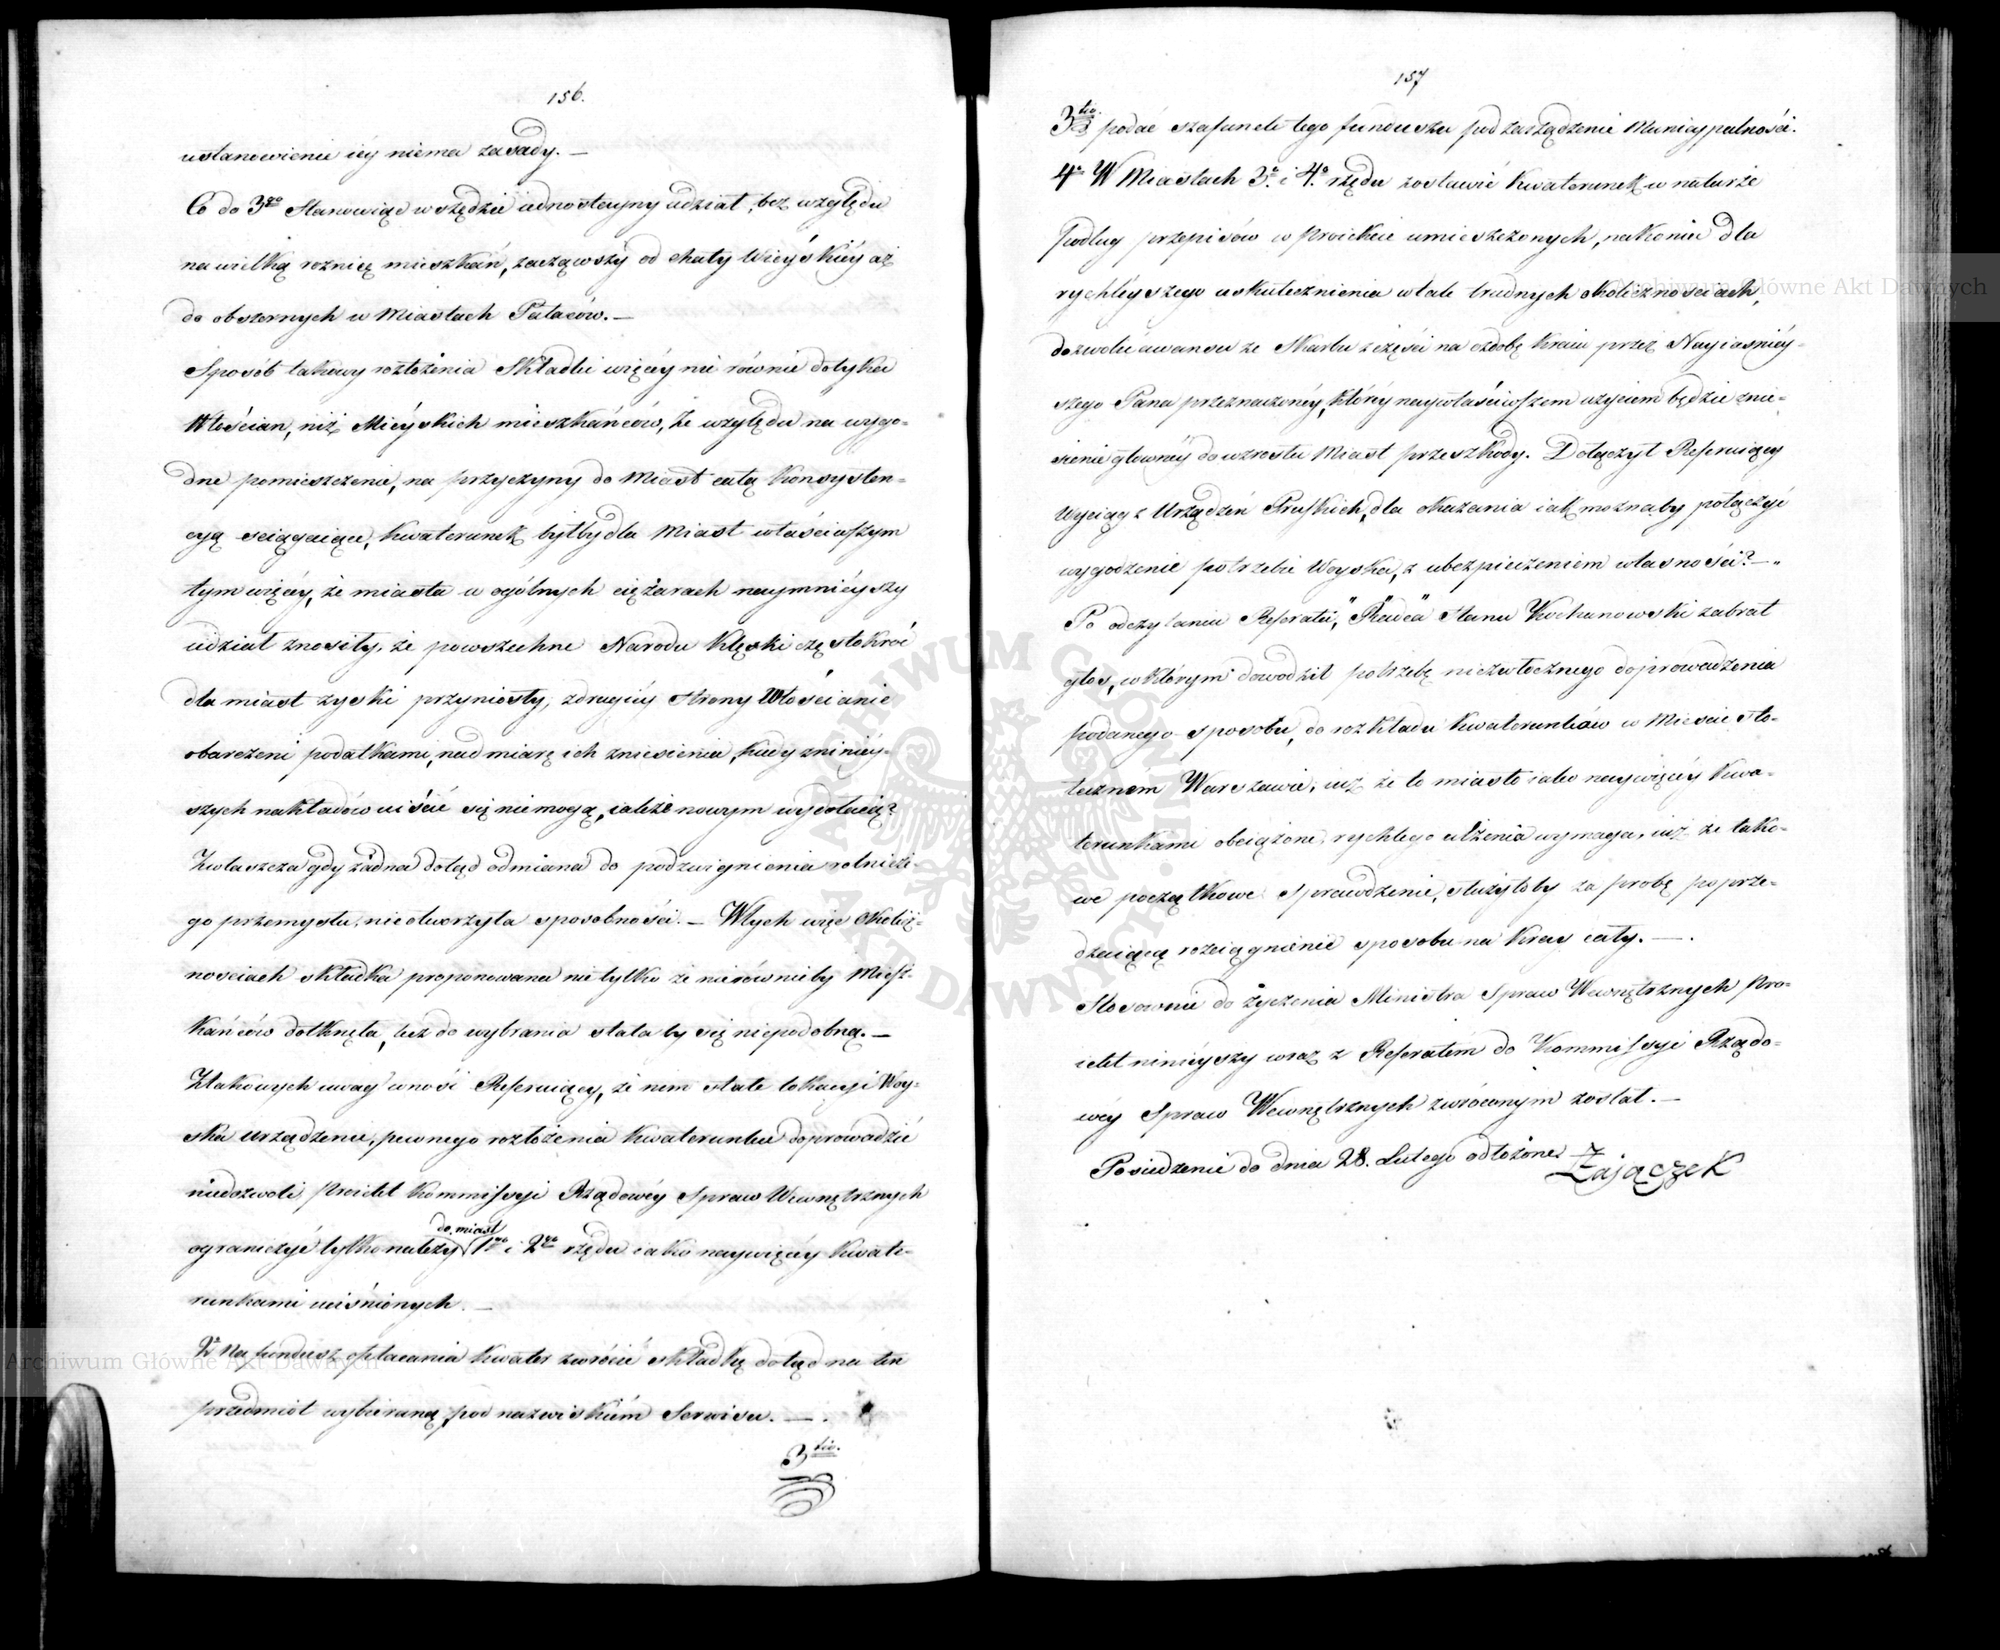 156.
ustanowieniu iéy niema zasady. —
Co do 3go Stanowiąc wszędzie iednostayny udział, bez względu
na wielką roznicę mieszkań, zacząwszy od chaty Wieyskiéy aż
do obszernych w Miastach Pałaców. —
Sposób takowy rozłożenia Składki więcéy nie równie dotyka
Włościan, niż Mieyskich mieszkańców, Ze względu na wygo-
dne pomieszczenie, na przyczyny do Miast całą Konsysten-
cyą sciągaiące, Kwaterunek byłby dla Miast właściwszym
tym więcéy, że miasta w ogólnych ciężarach naymnieyszy
udział znosiły, że powszechne Narodu Klęski częstokroć
dla miast zyski przyniosły, z drugiéy strony Włościanie
obarczeni podatkami, nad miarę ich zniesienia, kiedy z mniéy-
szych nakładów uiścić się nie mogą, iakże nowym wydołaią?
Zwłaszcza gdy żadna dotąd odmiana do podzwignienia rolnicze-
go przemysłu, nie otworzyła sposobności. — W tych więc Okolicz-
nosciach składka proponowana nie tylko że nierównieby Miesz-
kańców dotknęła, lecz do wybrania stała by się niepodobną. —
Z takowych uwag wnosi Referuiący, że nim stałe lokacyi Woy-
ska urządzenie, pewnego rozłożenia Kwaterunku doprowadzić
niedozwoli, Proiekt Kommissyi Rządowéy Spraw Wewnętrznych
do miast
ograniczyć tylko należy 1go i 2go rzędu iako naywięcéy kwate-
runkami uciśnionych. —
2o Na fundusz opłacania kwater zwrócić składkę dotąd na ten
przedmiot wybieraną, pod nazwiskiem Serwisu. —.
3tio.
157
3tio. podać szafunek tego funduszu pod zarządzenie Municypalności.
4o W Miastach 3o. i 4o. rzędu zostawić Kwaterunek w naturze
podług przepisów w Proiekcie umieszczonych, nakoniec dla
rychleyszego uskutecznienia w tak trudnych okolicznościach,
dozwolić awansu ze Skarbu z części na ozdobę Kraiu przez Nayiaśniéy-
szego Pana przeznaczonéy, któréy naywłaściwszem użyciem będzie znie-
sienie głównéy do wzrostu Miast przeszkody. Dołączył Referuiący
Wyciąg z Urządzeń Pruskich, dla okazania iak możnaby połączyć
wygodzenie potrzebie Woyska, z ubezpieczeniem własności? —"
Po odczytaniu Referatu, Radca Stanu Kochanowski zabrał
głos, w którym dowodził potrzebę niezwłocznego doprowadzenia
podanego sposobu, do rozkładu Kwaterunków w Mieście sto-
łecznem Warszawie, iuż że to miasto iako naywięcéy Kwa-
terunkami obciążone, rychłego ulżenia wymaga, iuż że tako-
we początkowe Sprawdzenie, służyłoby za probę poprze-
dzaiącą rozciągnienie sposobu na Kray cały. —.
Stosownie do życzenia Ministra Spraw Wewnętrznych Pro-
iekt ninieyszy wraz z Referatem do Kommissyi Rządo-
wéy Spraw Wewnętrznych zwróconym został. —
Posiedzenie do dnia 28. Lutego odłożone.
Zajączek
Archiwum Główne Akt Dawnych
Archiwum Główne Akt Dawnych
ARCHIWUM GŁÓWNE AKT DAWNYCH